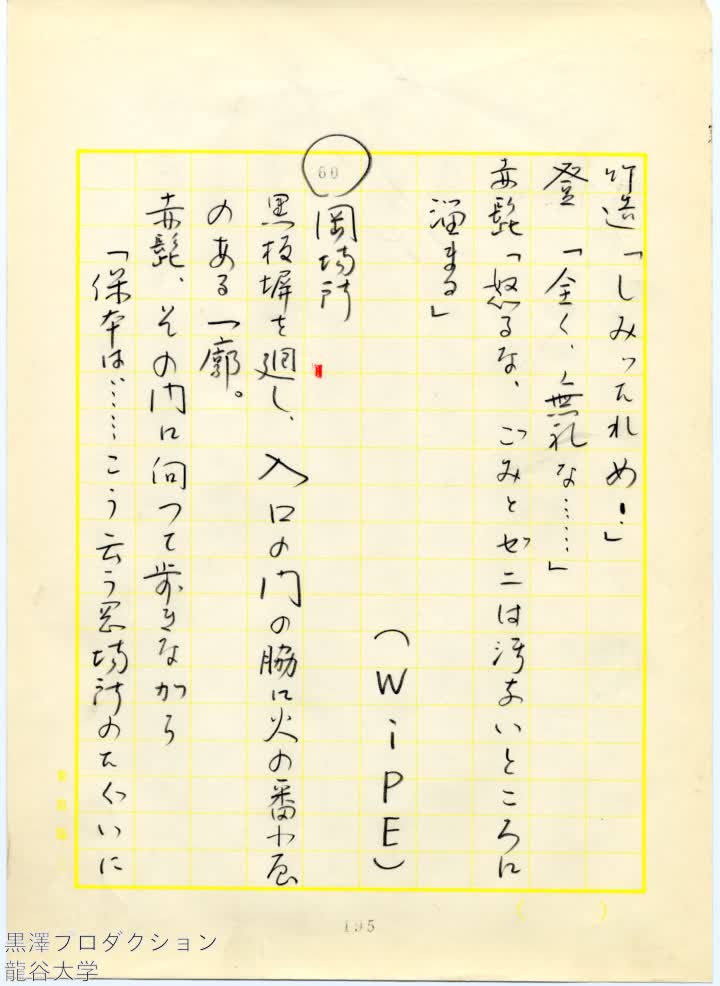 竹造「しみったれめ!」
登　「全く、無礼な……」
赤髭「怒るな、ごみとゼニは汚ないところに
溜まる」
（WiPE）
60
岡場所
黒板塀を廻し、入口の門の脇に火の番小屋
のある一廓。
赤髭、その門に向って歩きながら
「保本は……こう云う岡場所のたぐいに
195
黒澤プロダクション
龍谷大学